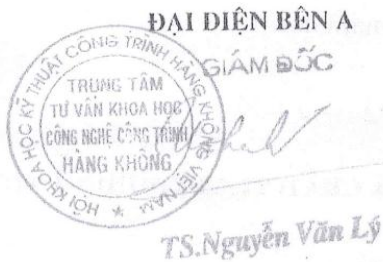 ĐẠI DIỆN BÊN A
GIÁM ĐỐC
HỘI KHOA HỌC KỸ THUẬT CÔNG TRÌNH HÀNG KHÔNG VIỆT NAM
TRUNG TÂM
TƯ VẤN KHOA HỌC
CÔNG NGHỆ CÔNG TRÌNH
HÀNG KHÔNG
TS.Nguyễn Văn Lý